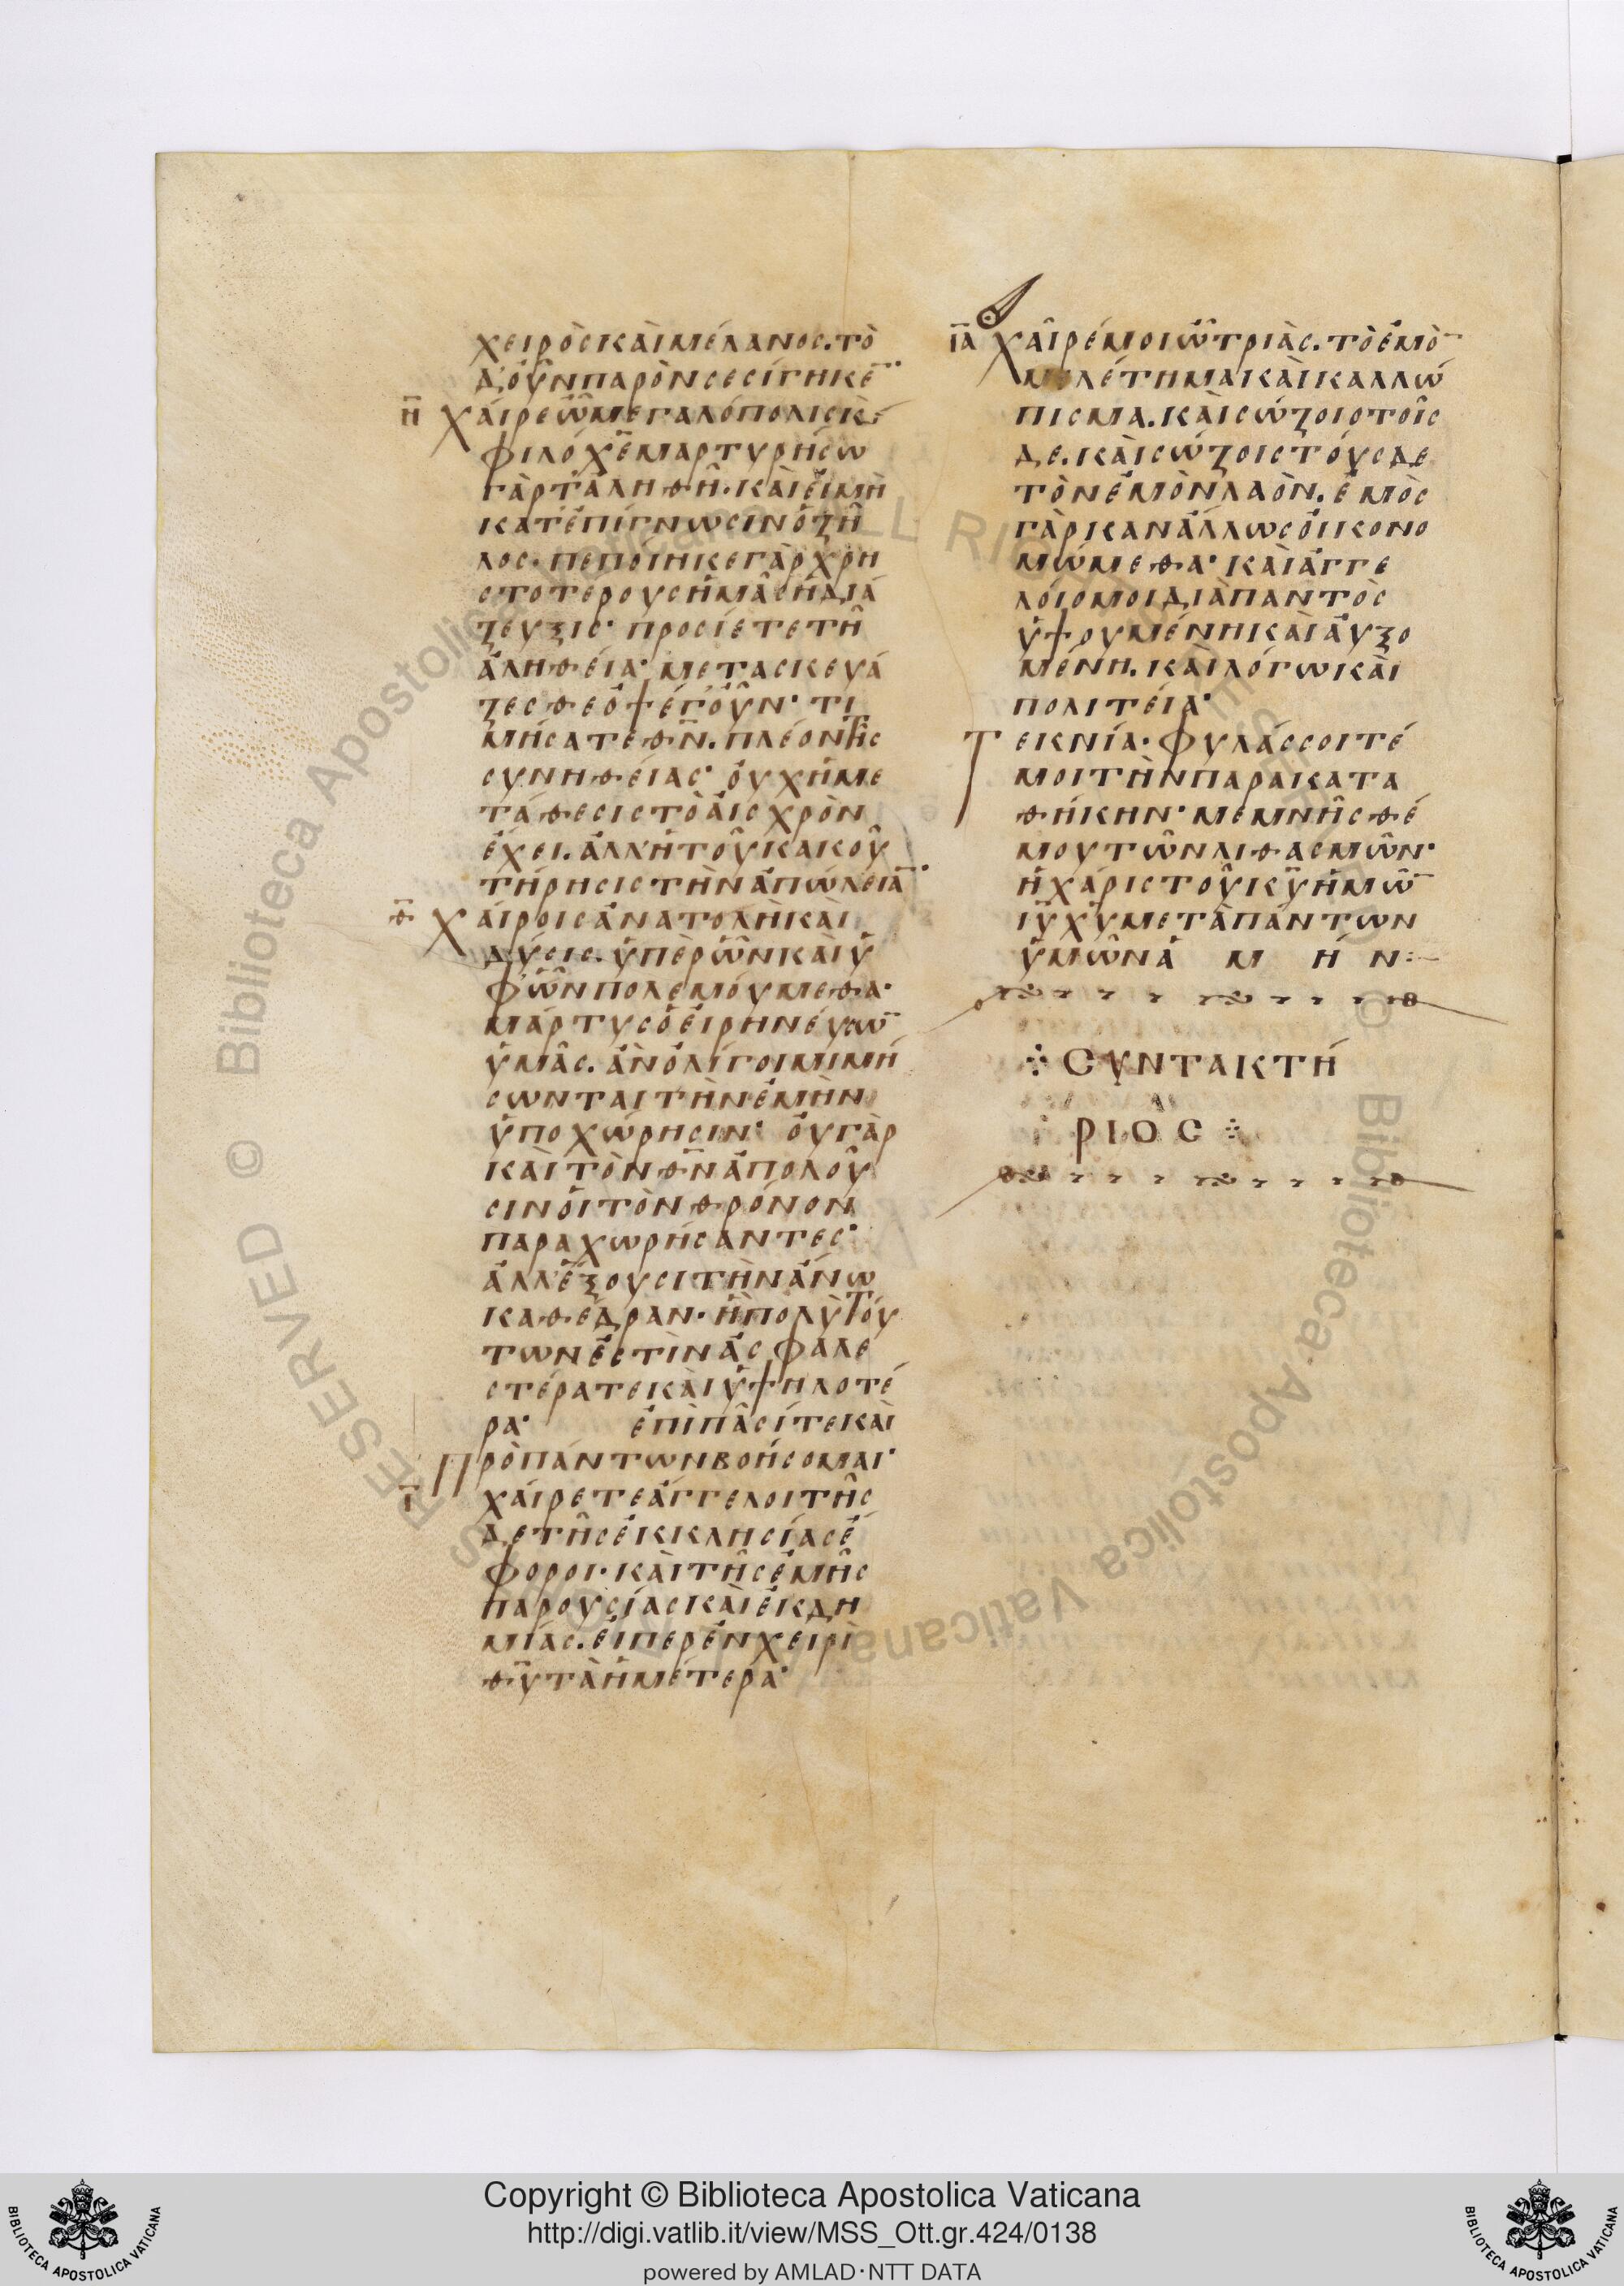 χειρὸς καὶ μέλανος. τὸ
δ' οὖν παρὸν σεσίγηκε̅·
η̅ χαίρε ὦ μεγαλόπολις κ̀
φιλόχ̅ε μαρτυρήσω
γὰρ τἀληθῆ· καὶ εἰ μὴ
κατ' ἐπίγνωσιν ὁ ζῆ
λος· πεποίηκε γὰρ χρη
στοτέρους ἡμᾶς ἡ διά
ζευξις· προσίετε τῇ
ἀληθεία· μετασκευά
ζεσθε ὀψέ γ' οὖν· τι
μήσατε θ̅ν. πλέον τῆς
συνηθείας· οὐχ ἡ με
τάθεσις τὸ αἰσχρὸν
ἔχει. ἀλλ' ἡ τοῦ κακοῦ
τήρησις τὴν ἀπώλεια̅·
θ̅ χαίροις ἀνατολὴ καὶ
δύσις. ὑπὲρ ὧν καὶ ὑ
φ' ὧν πολεμούμεθα·
μάρτυς ὁ εἰρηνεύω̅
ὑμᾶς. ἂν ὀλίγοι μιμή
σωνται τὴν ἐμὴν
ὑποχώρησιν· οὐ γὰρ
καὶ τὸν θ̅ν ἀπολοῦ
σιν οἱ τὸν θρόνον
παραχωρήσαντες·
ἀλλ' ἕξουσι τὴν ἄνω
καθέδραν· ἣ πολὺ τού
των ἐστὶν ἀσφαλε
στέρα τε καὶ ὑψηλοτέ
ρα· ἐπὶ πᾶσί τε καὶ
πρὸ πάντων βοήσομαι·
ι̅ χαίρετε ἄγγελοι τῆς
δε τῆς ἐκκλησίας ἔ
φοροι· καὶ τῆς ἐμῆς
παρουσίας καὶ ἐκδη
μίας. εἴπερ ἐν χειρὶ
θ̅υ τὰ ἡμέτερα·
ια̅ χαῖρέ μοι ὦ τριὰς. τὸ ἐμὸ̅
μελέτημα καὶ καλλώ
πισμα. καὶ σώζοιο τοῖς
δε. καὶ σώζοις τούσδε
τὸν ἐμὸν λαὸν. ἐμὸς
γὰρ κἂν ἄλλως οἰκονο
μώμεθα· καὶ ἀγγέ
λοιό μοι διὰ παντὸς
ὑψουμένη καὶ αὐξο
μένη. καὶ λόγω καὶ
πολιτεία·
τεκνία· φυλάσσοιτέ
μοι τὴν παρακατα
θήκην· μέμνησθέ
μου τῶν λιθασμῶν·
ἡ χάρις τοῦ κ̅υ ἡμῶ̅
ι̅υ χ̅υ μετὰ πάντων
ὑμῶν ἀ μ ή ν:-
Συντακτή
ριος
Copyright © Biblioteca Apostolica Vaticana
http://digi.vatlib.it/view/MSS_Ott.gr.424/0138
powered by AMLAD·NTT DATA